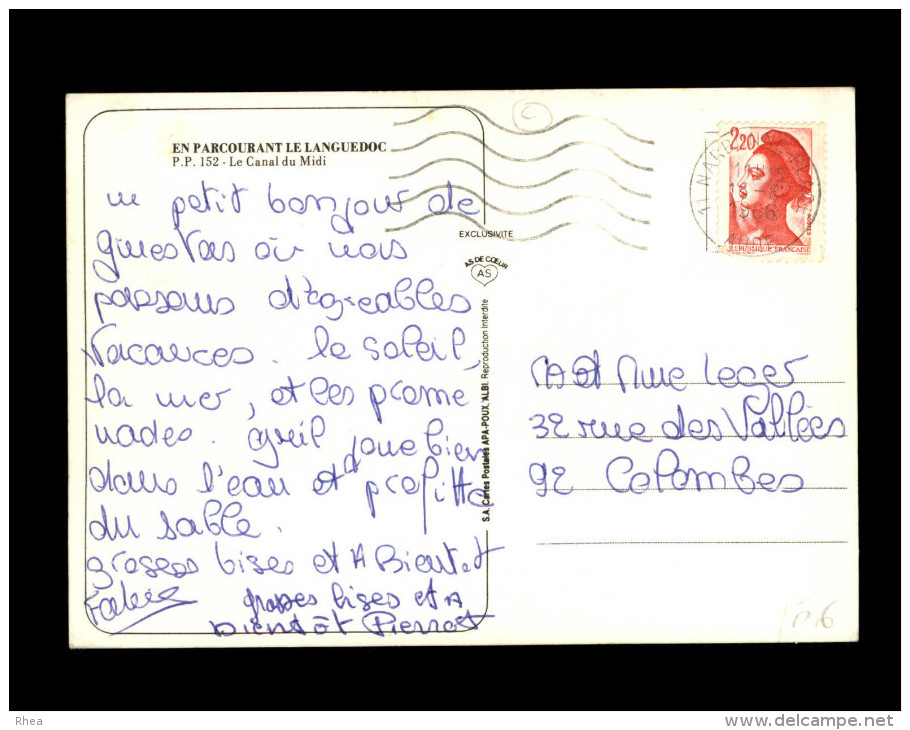 EN PARCOURANT LE LANGUEDOC
P.P. 152 - Le Canal du Midi
un petit bonjour de
ginestas où nous
passons d'agreables
Vacances. le soleil,
la mer, et les prome
nades. joue bien
dans l'eau et profitte
du sable.
grosses bises et A Bientot
grosses bises et A
Bientôt Pierrot
EXCLUSIVITE
AS DE CŒUR
AS
S.A. Cartes Postales APA-POUX, ALBI. Reproduction Interdite
2,20
REPUBLIQUE FRANÇAISE
11 NARB
18
1986
AUDE
M et Mme Leger
32 rue des Vallées
92 Colombes
Rhea
delcampe.net